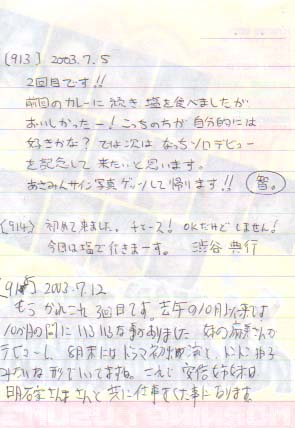 [913] 2003.7.5
2回目です!!
前回のカレーに続き塩を食べましたが
おいしかったー!こっちのちが自分的には
好きかな?では次は なっちソロデビュー
を記念して来たいと思います。
あさみんサイン写真ゲッツして帰ります!! 智。
[914] 初めて来ました。チェース! OKだけどしません!
今回は塩で行きまーす。 渋谷 典行
[915] 2003.7.12
もう かれこれ 3回目です。去年の10月以来です
10か月の間にいろいろな事がありました 妹の麻美さんが
デビューし、8月にはドラマ初出演と、とんとん
みたいな形でいってますね。これで 安倍姉妹は
明石家さんまさんと 共に仕事をした事になります。